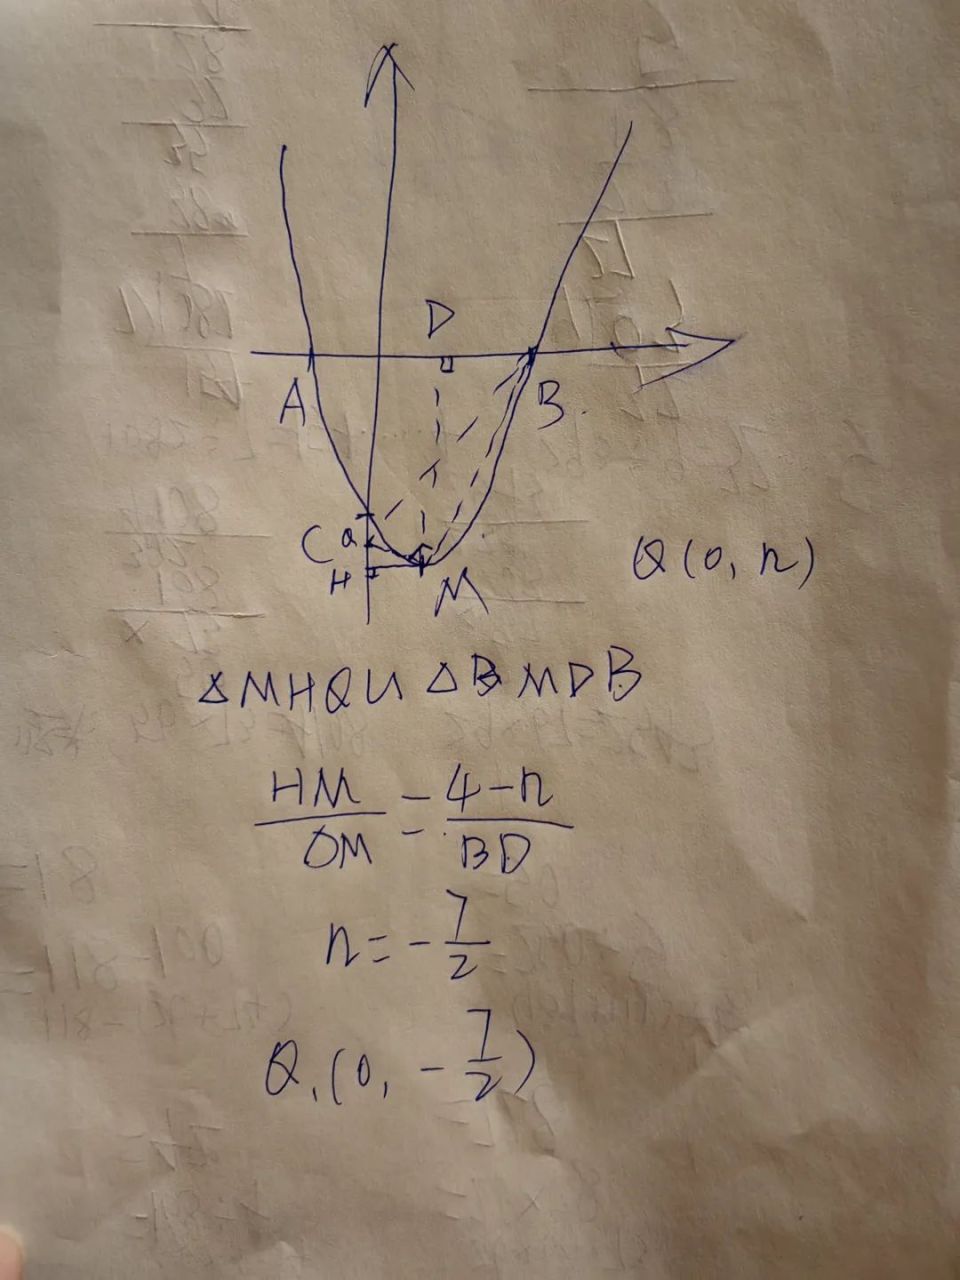 D
A
B
C Q
H
M
Q(0, n)
△MHQ ∽ △BMDB
HM/DM = 4-n/BD
n = -7/2
Q₁(0, -7/2)